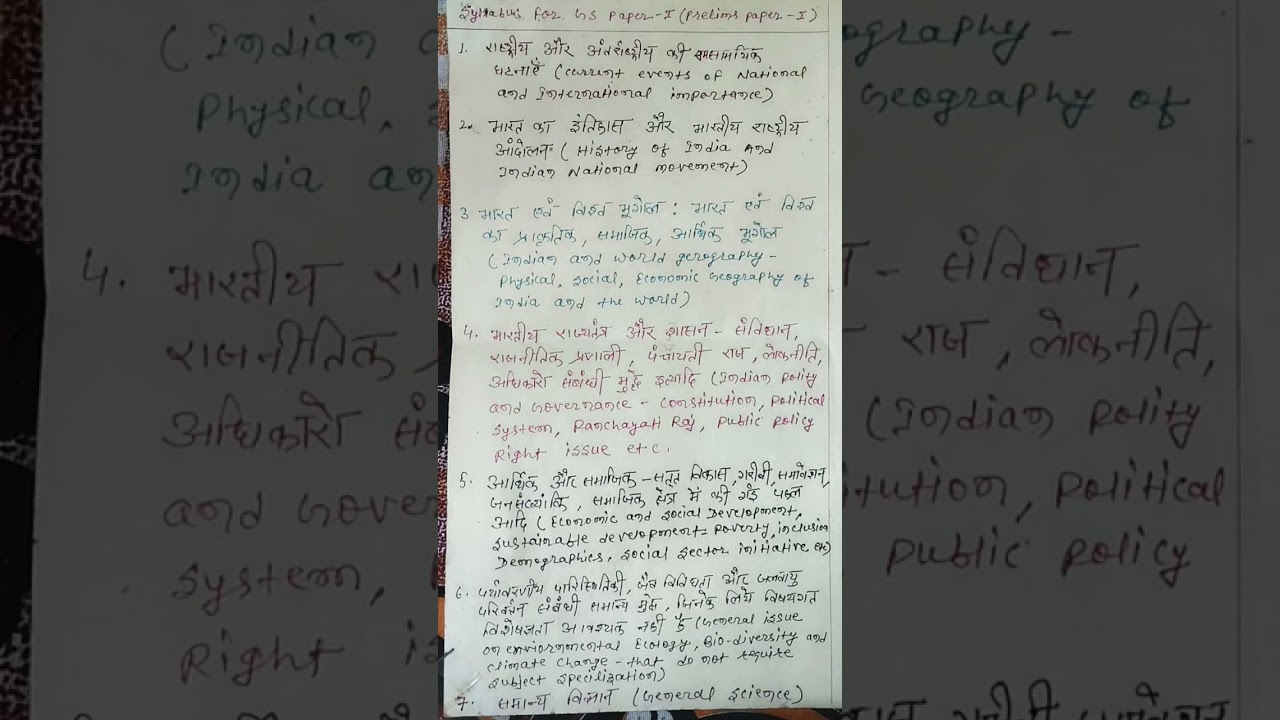 Syllabus For GS Paper-I (Prelims Paper-I)
1. राष्ट्रीय और अंतर्राष्ट्रीय की समसामयिक
घटनाएँ (current events of National
and International importance)
2. भारत का इतिहास और भारतीय राष्ट्रीय
आंदोलन (History of India and
Indian National movement)
3 भारत एवं विश्व भूगोल : भारत एवं विश्व
का प्राकृतिक, समाजिक, आर्थिक भूगोल
(Indian and world gerography -
Physical, social, Economic Geography of
India and the world)
4. भारतीय राज्यतंत्र और शासन - संविधान,
राजनीतिक प्रणाली, पंचायती राज, लोकनीति,
अधिकारों संबंधी मुद्दे इत्यादि (Indian polity
and Governance - constitution, political
system, Panchayati Raj, public policy
Right issue etc.
5. आर्थिक और समाजिक - सतत विकास, गरीबी, समावेशन,
जनसंख्यिकी, समाजिक क्षेत्र में की गई पहल
आदि (Economic and social Development,
sustainable development = poverty, inclusion
Demographics, social sector initiative etc)
6. पर्यावरणीय पारिस्थितिकी, जैव विविधता और जलवायु
परिवर्तन संबंधी समान्य मुद्दे, जिनके लिये विषयगत
विशेषज्ञता आवश्यक नहीं है (General issue
on enviornmental Ecology, Bio-diversity and
climate change - that do not require
subject specilization)
7. समान्य विज्ञान (General science)